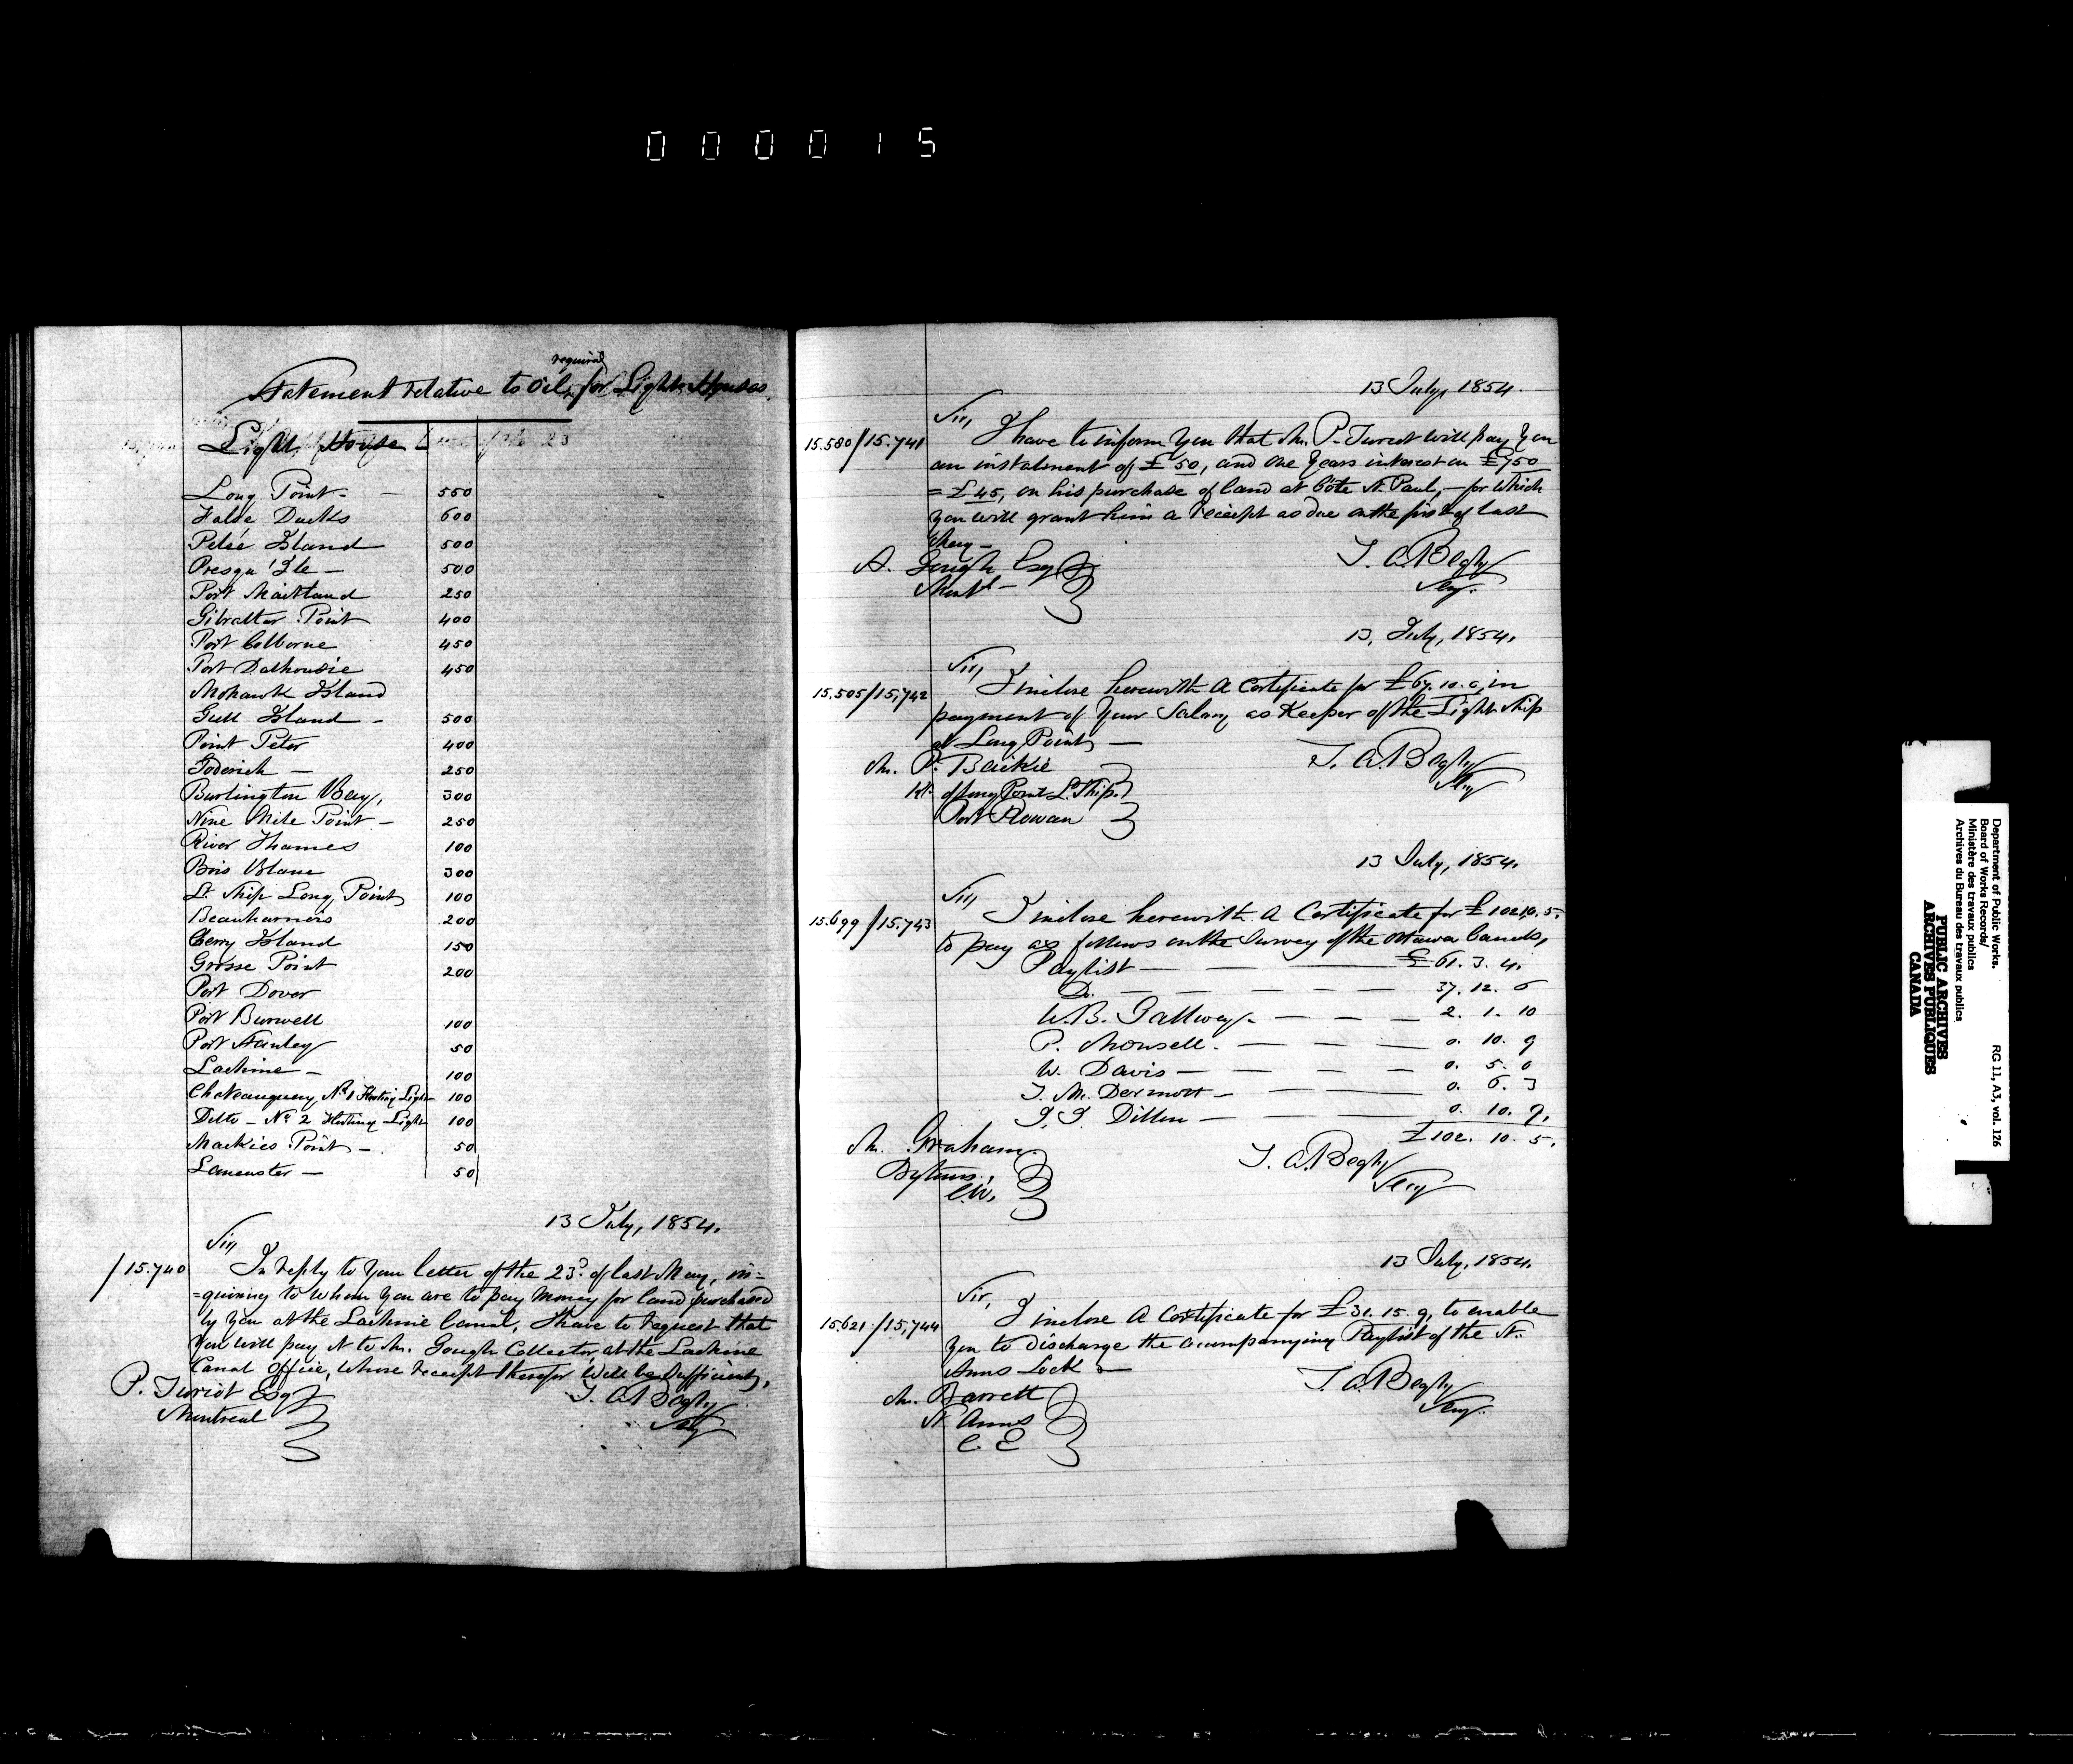 000015
Statement relative to Oil required for Light Houses
Light House
Long Point - 550
False Ducks 600
Pelée Island 500
Presqu'Ile - 500
Port Maitland 250
Gibralter Point 400
Port Colborne 450
Port Dalhousie 450
Mohawk Island
Gull Island - 500
Point Peter 400
Goderich - 250
Burlington Bay, 300
Nine Mile Point - 250
River Thames 100
Bois Blanc 300
Lt. Ship Long Point 100
Beauharnois 200
Cherry Island 150
Grosse Point 200
Port Dover
Port Burwell 100
Port Stanley 50
Lachine - 100
Chateauguay No 1 Floating Light 100
Ditto - No 2 Floating Light 100
Mackies Point - 50
Lancaster - 50
13 July, 1854.
Sir,
/15.740 In reply to your letter of the 23d. of last May, in=
=quiring to whom you are to pay money for land purchased
by you at the Lachine Canal, I have to request that
you will pay it to Mr. Gough Collector at the Lachine
Canal Office, whose receipt therefor will be sufficient,
P. Turcot Esq T. A. Begly
Montreal Secy
13 July, 1854.
Sir,
15.580/15.741 I have to inform you that Mr. P. Turcot will pay you
an instalment of £50, and one years interest on £750
= £45, on his purchase of land at Côte St. Paul, - for which
you will grant him a receipt as due on the first of last
May -
A. Gough Esq T. A. Begly
Montl - Secy.
13, July, 1854.
Sir,
15.505/15.742 I inclose herewith A Certificate for £67.10.0, in
payment of your Salary as Keeper of the Light Ship
at Long Point, -
Mr. P. Baikie T. A. Begly
Kr. of Long Point Lt. Ship. Secy
Port Rowan
13 July, 1854.
Sir,
15.699/15.743 I inclose herewith A Certificate for £102.10.5.
to pay as follows on the Survey of the Ottawa Canals,
Paylist - £61. 3. 4.
Do. - 37. 12. 6
W. B. Gallwey. - 2. 1. 10
P. Monsell. - 0. 10. 9
W. Davis - 0. 5. 0
J. McDermott - 0. 6. 3
J. J. Dillon - 0. 10. 9.
£102. 10. 5.
Mr. Graham T. A. Begly
Bytown, Secy
C.W.
13 July, 1854.
Sir,
15.621/15,744 I inclose A Certificate for £31. 15. 9, to enable
you to discharge the accompanying Paylist of the St.
Anns Lock -
Mr. Barrett T. A. Begly
St. Anns Secy.
C. E
Department of Public Works. RG 11, A3, vol. 126
Board of Works Records/
Ministère des travaux publics
Archives du Bureau des travaux publics
PUBLIC ARCHIVES
ARCHIVES PUBLIQUES
CANADA